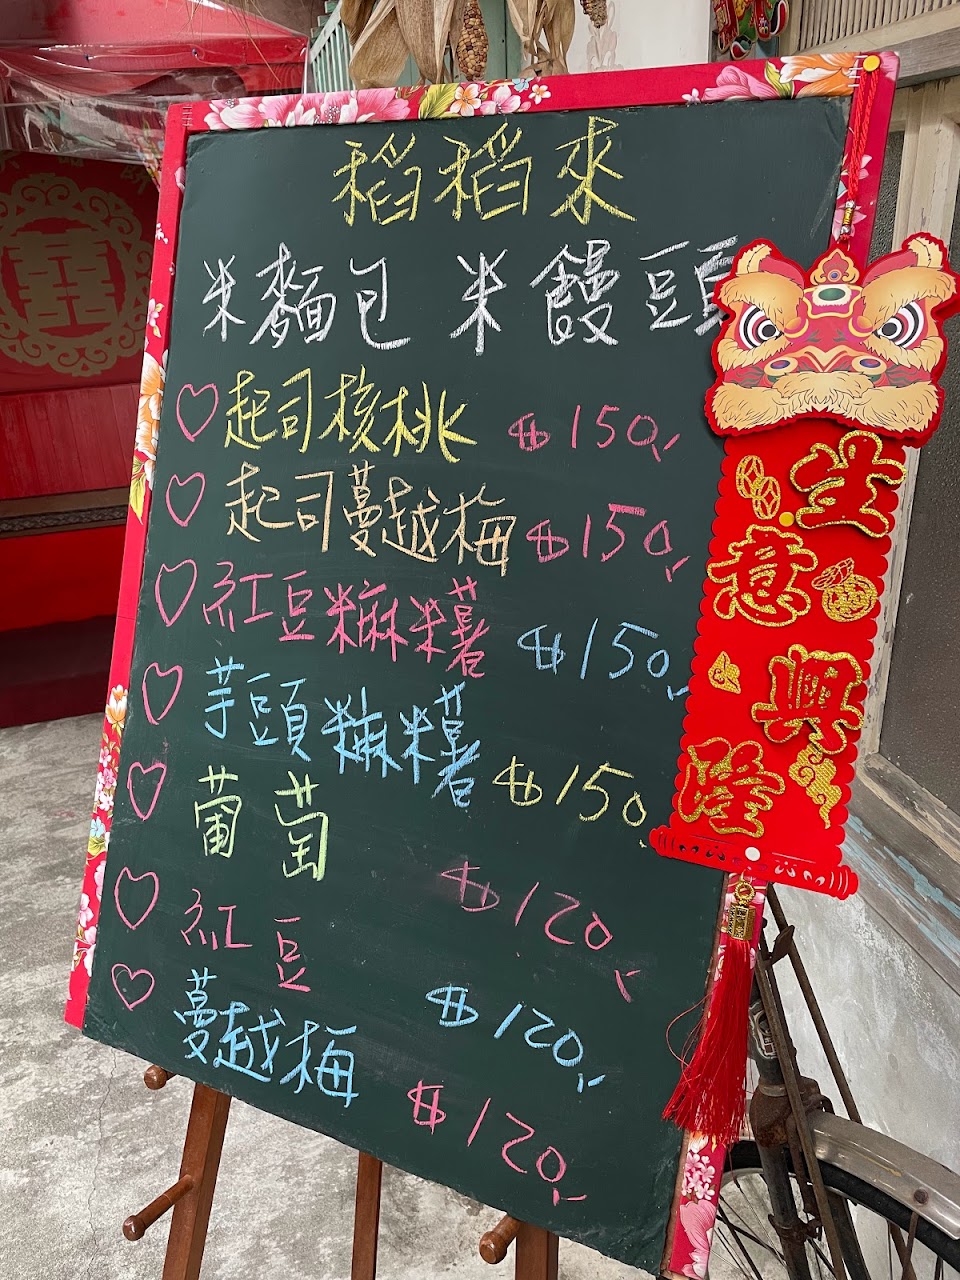 稻稻來
米麵包 米饅頭
起司核桃 $150.-
起司蔓越梅 $150.-
紅豆米麻米薯 $150.-
芋頭米麻米薯 $150.-
葡萄 $120.-
紅豆 $120.-
蔓越梅 $120.-
生意興隆
囍